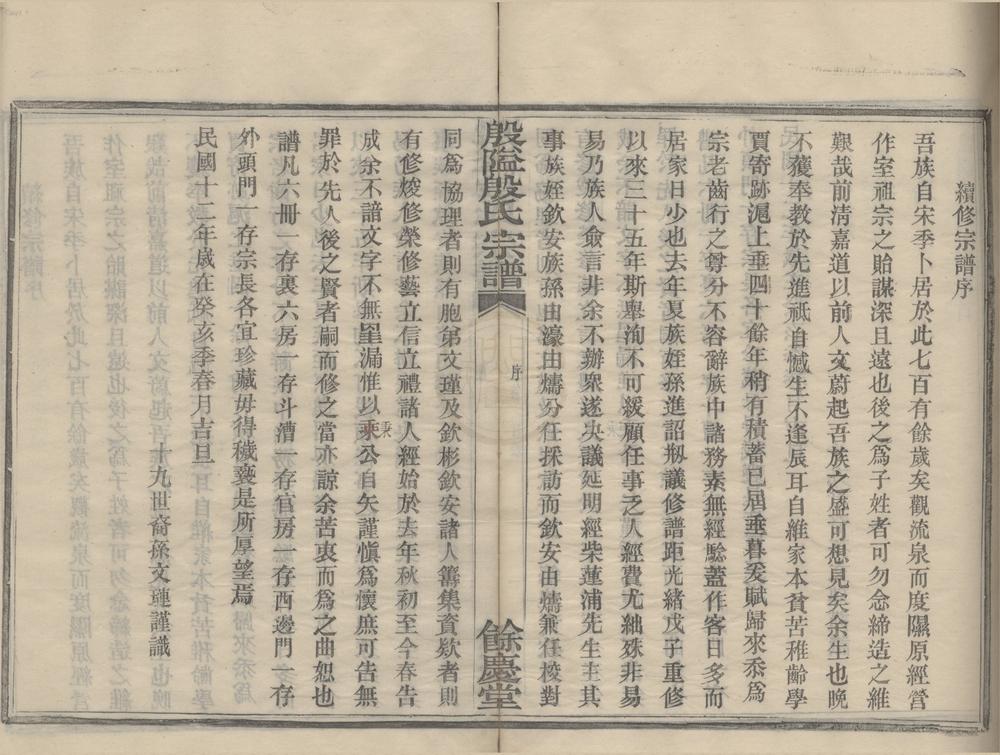 續修宗譜序
吾族自宋季卜居於此七百有餘歲矣觀流泉而度隰原經營
作室祖宗之貽謀深且遠也後之為子姓者可勿念締造之維
艱哉前清嘉道以前人文蔚起吾族之盛可想見矣余生也晚
不獲奉教於先進祇自憾生不逢辰耳自維家本貧苦稚齡學
賈寄跡滬上垂四十餘年稍有積蓄已屆垂暮爰賦歸來忝為
宗老齒行之尊分不容辭族中諸務素無經驗蓋作客日多而
居家日少也去年夏族姪孫進詔刱議修譜距光緒戊子重修
以來三十五年斯舉洵不可緩顧任事乏人經費尤絀殊非易
易乃族人僉言非余不辦眾遂決議延明經柴蓮浦先生主其
事族姪欽安族孫由濠由燽分任採訪而欽安由燽兼任校對
殷隘殷氏宗譜
序
餘慶堂
同為協理者則有胞弟文瑾及欽彬欽安諸人籌集資欵者則
有修焌修榮修藝立信立禮諸人經始於去年秋初至今春告
成余不諳文字不無罣漏惟以秉公自矢謹慎為懷庶可告無
罪於先人後之賢者嗣而修之當亦諒余苦衷而為之曲恕也
譜凡六冊一存裏六房一存斗漕一存官房一存西邊門一存
外頭門一存宗長各宜珍藏毋得穢褻是所厚望焉
民國十二年歲在癸亥季春月吉旦
十九世裔孫文璉謹識